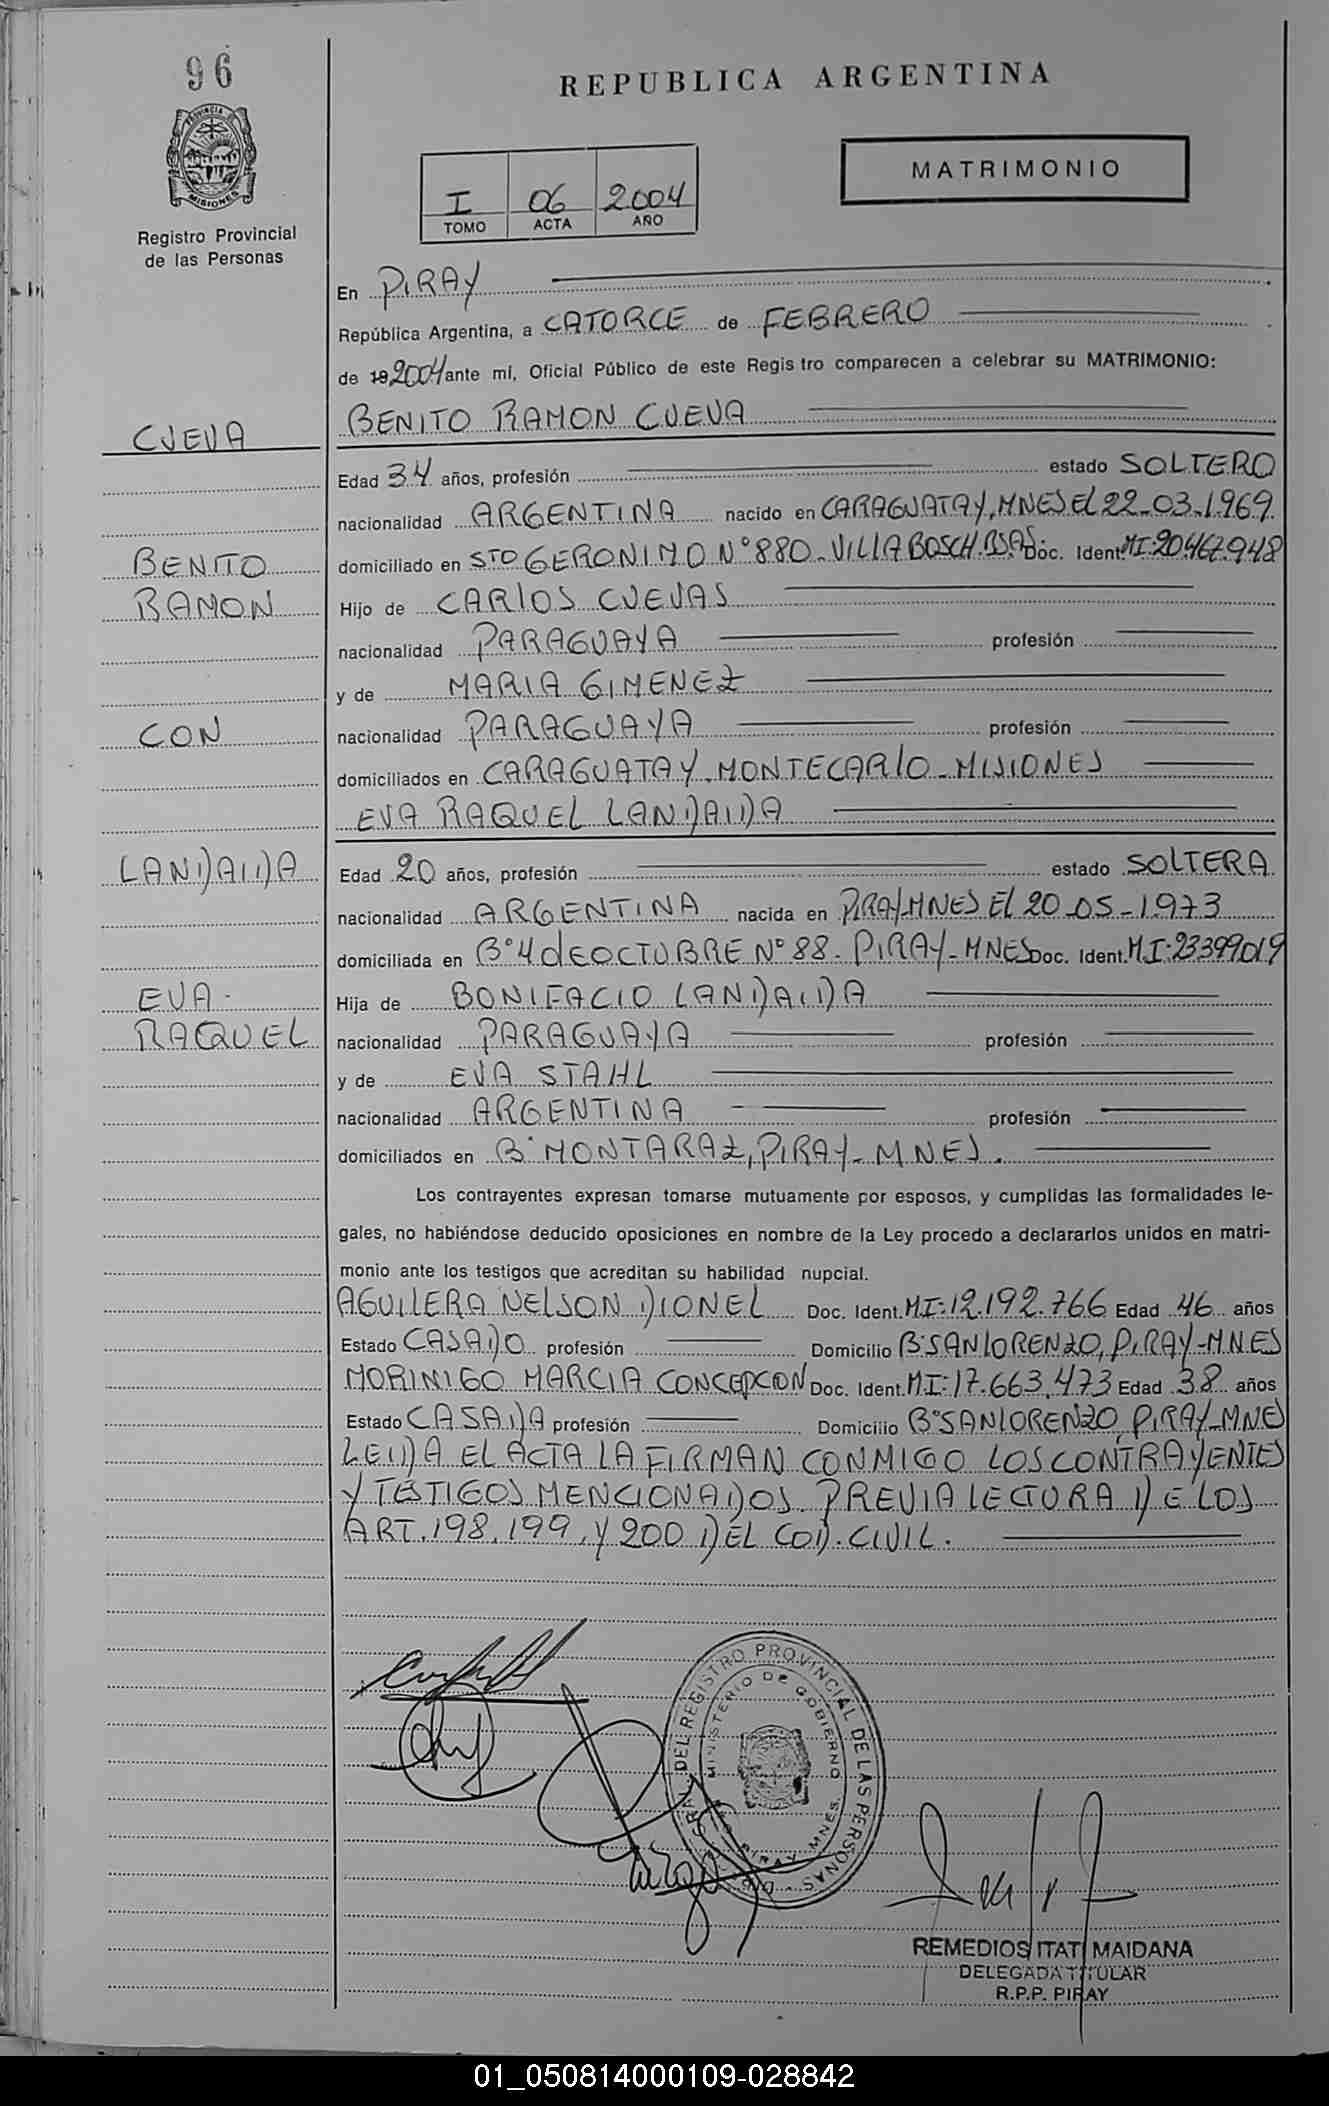 96
REPUBLICA ARGENTINA
PROVINCIA D
MISIONES
Registro Provincial
de las Personas
I 06 2004
TOMO ACTA AÑO
MATRIMONIO
En PIRAY
República Argentina, a CATORCE de FEBRERO
de 19 2004 ante mí, Oficial Público de este Regis tro comparecen a celebrar su MATRIMONIO:
CUEVA BENITO RAMON CUEVA
Edad 34 años, profesión estado SOLTERO
nacionalidad ARGENTINA nacido en CARAGUATAY, MNES EL 22-03-1969
BENITO domiciliado en STO GERONIMO N° 880-VILLA BOSCH.BSAS Doc. Ident. MI:20.467.948
RAMON Hijo de CARLOS CUEVAS
nacionalidad PARAGUAYA profesión
y de MARIA GIMENEZ
CON nacionalidad PARAGUAYA profesión
domiciliados en CARAGUATAY, MONTECARLO-MISIONES
EVA RAQUEL LANDAIDA
LANDAIDA Edad 20 años, profesión estado SOLTERA
nacionalidad ARGENTINA nacida en PIRAY-MNES EL 20-05-1973
domiciliada en B° 4 de OCTUBRE N° 88-PIRAY-MNES Doc. Ident. M.I:23399019
EVA Hija de BONIFACIO LANDAIDA
RAQUEL nacionalidad PARAGUAYA profesión
y de EVA STAHL
nacionalidad ARGENTINA profesión
domiciliados en B° MONTARAZ, PIRAY-MNES.
Los contrayentes expresan tomarse mutuamente por esposos, y cumplidas las formalidades le-
gales, no habiéndose deducido oposiciones en nombre de la Ley procedo a declararlos unidos en matri-
monio ante los testigos que acreditan su habilidad nupcial.
AGUILERA NELSON DIONEL Doc. Ident. M.I:12.192.766 Edad 46 años
Estado CASADO profesión Domicilio B° SAN LORENZO, PIRAY-MNES
MORINIGO MARCIA CONCEPCON Doc. Ident. M.I:17.663.473 Edad 38 años
Estado CASADA profesión Domicilio B° SAN LORENZO, PIRAY-MNES
LEIDA EL ACTA LA FIRMAN CONMIGO LOS CONTRAYENTES
Y TESTIGOS MENCIONADOS PREVIA LECTURA DE LOS
ART. 198, 199, Y 200 DEL COD. CIVIL.
DEL REGISTRO PROVINCIAL DE LAS PERSONAS
MINISTERIO DE GOBIERNO
PIRAY MNES.
REMEDIOS ITATI MAIDANA
DELEGADA TITULAR
R.P.P. PIRAY
01_050814000109-028842